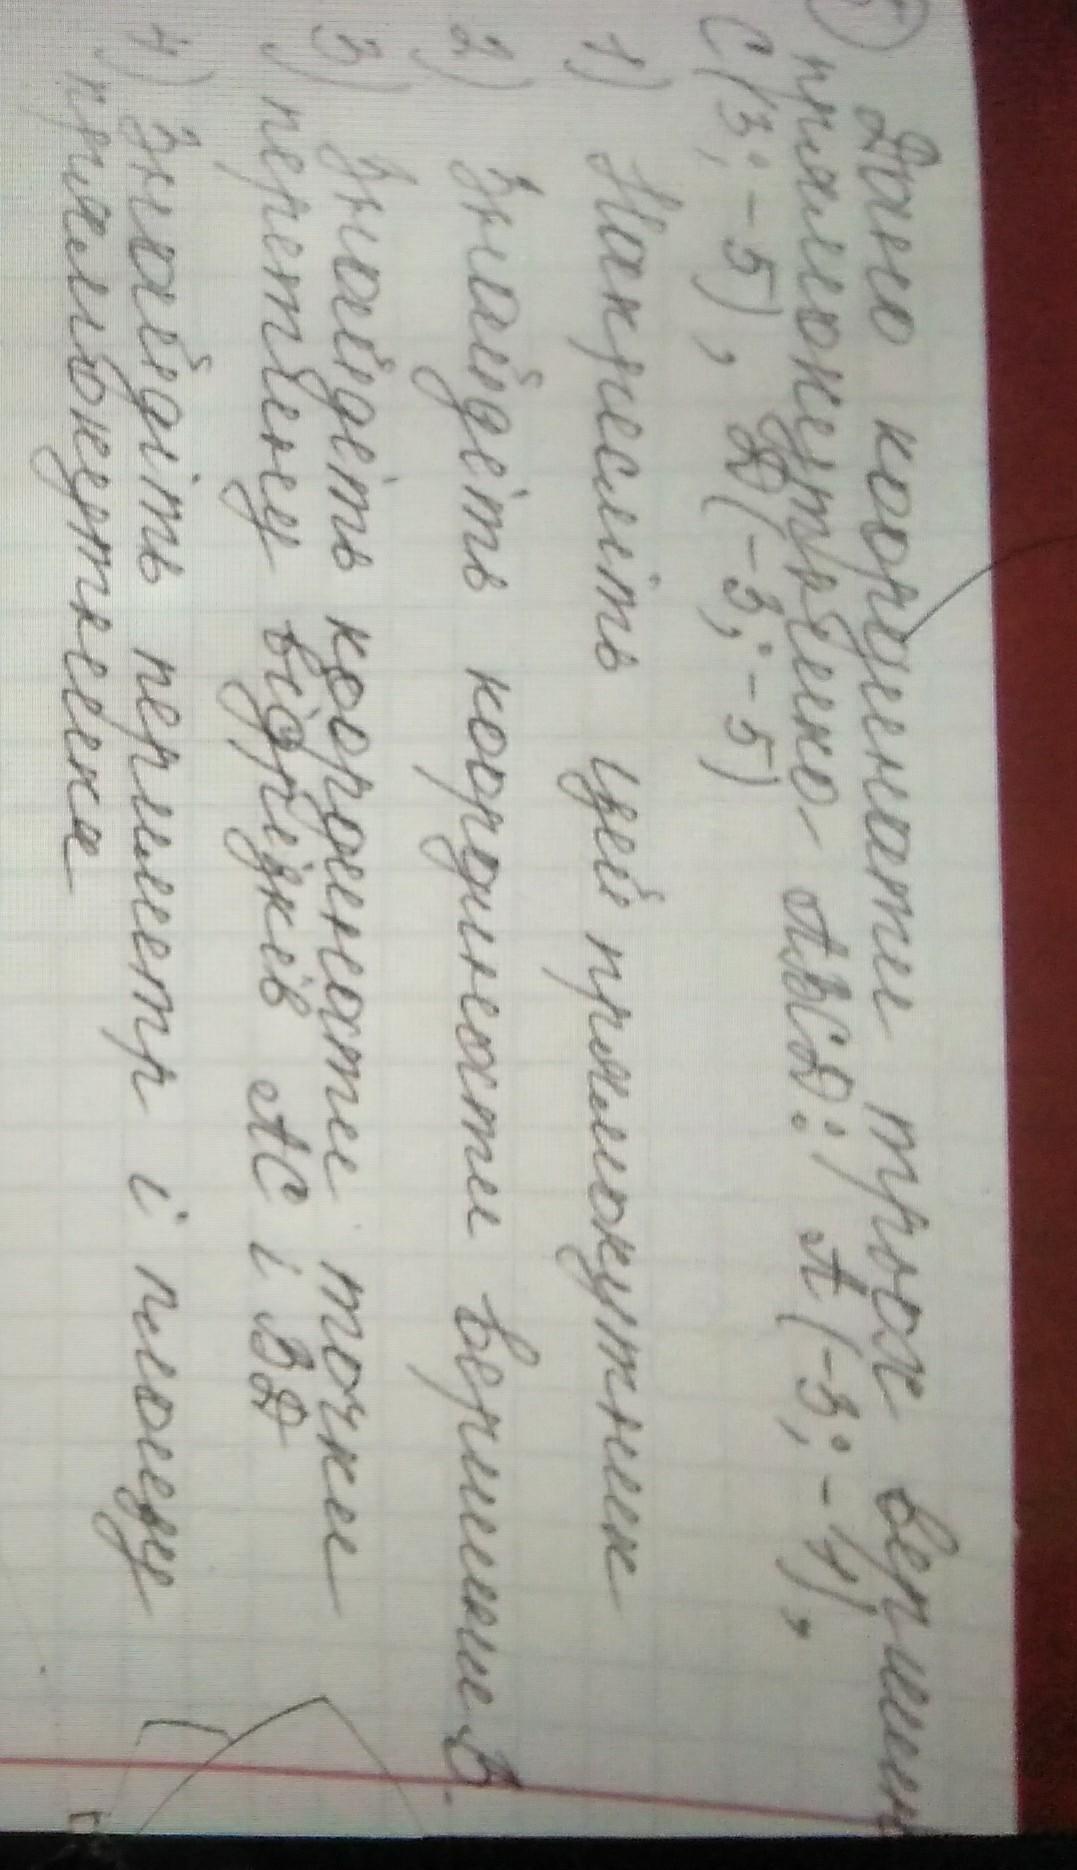 Дано координати трьох вершин
прямокутнико- ABCD: A (-3; -1),
C(3; -5), D(-3; -5)
1) Накресліть цей прямокутник
2) Знайдіть координати вершини В.
3) Знайдіть координати точки
перетину відрізків AC і BD
4) Знайдіть периметр і площу
прямокутника